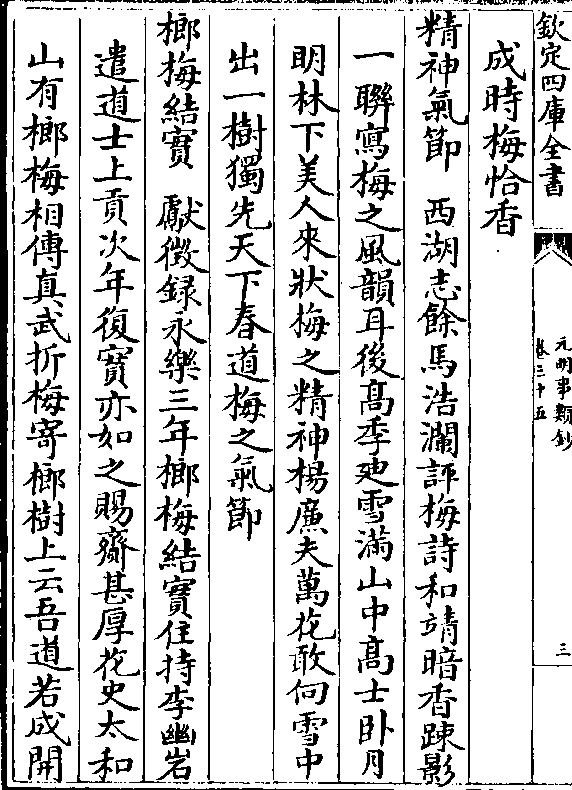 欽定四庫全書
元明事類鈔
卷三十五
三
成時梅恰香
精神氣節　西湖志餘馬浩瀾評梅詩和靖暗香踈影
一聯寫梅之風韻耳後髙季廸雪滿山中髙士卧月
明林下美人來狀梅之精神楊廉夫萬花敢向雪中
出一樹獨先天下春道梅之氣節
榔梅結實　獻徵録永樂三年榔梅結實住持李幽岩
遣道士上貢次年復實亦如之賜齎甚厚花史太和
山有榔梅相傳真武折梅寄榔樹上云吾道若成開